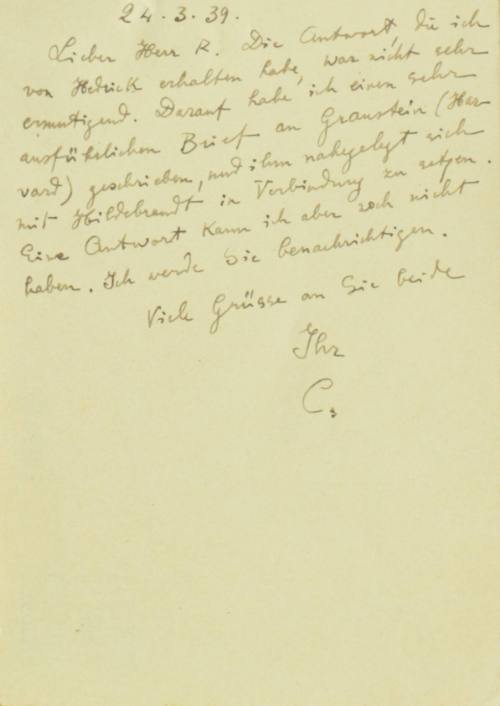 24.3.39.
Lieber Herr R. Die Antwort, die ich
von Hedrick erhalten habe, war nicht sehr
ermutigend. Darauf habe ich einen sehr
ausführlichen Brief an Graustein (Har-
vard) geschrieben, und ihm nahegelegt sich
mit Hildebrandt in Verbindung zu setzen.
Eine Antwort kann ich aber noch nicht
haben. Ich werde Sie benachrichtigen.
Viele Grüsse an Sie beide
Ihr
C.